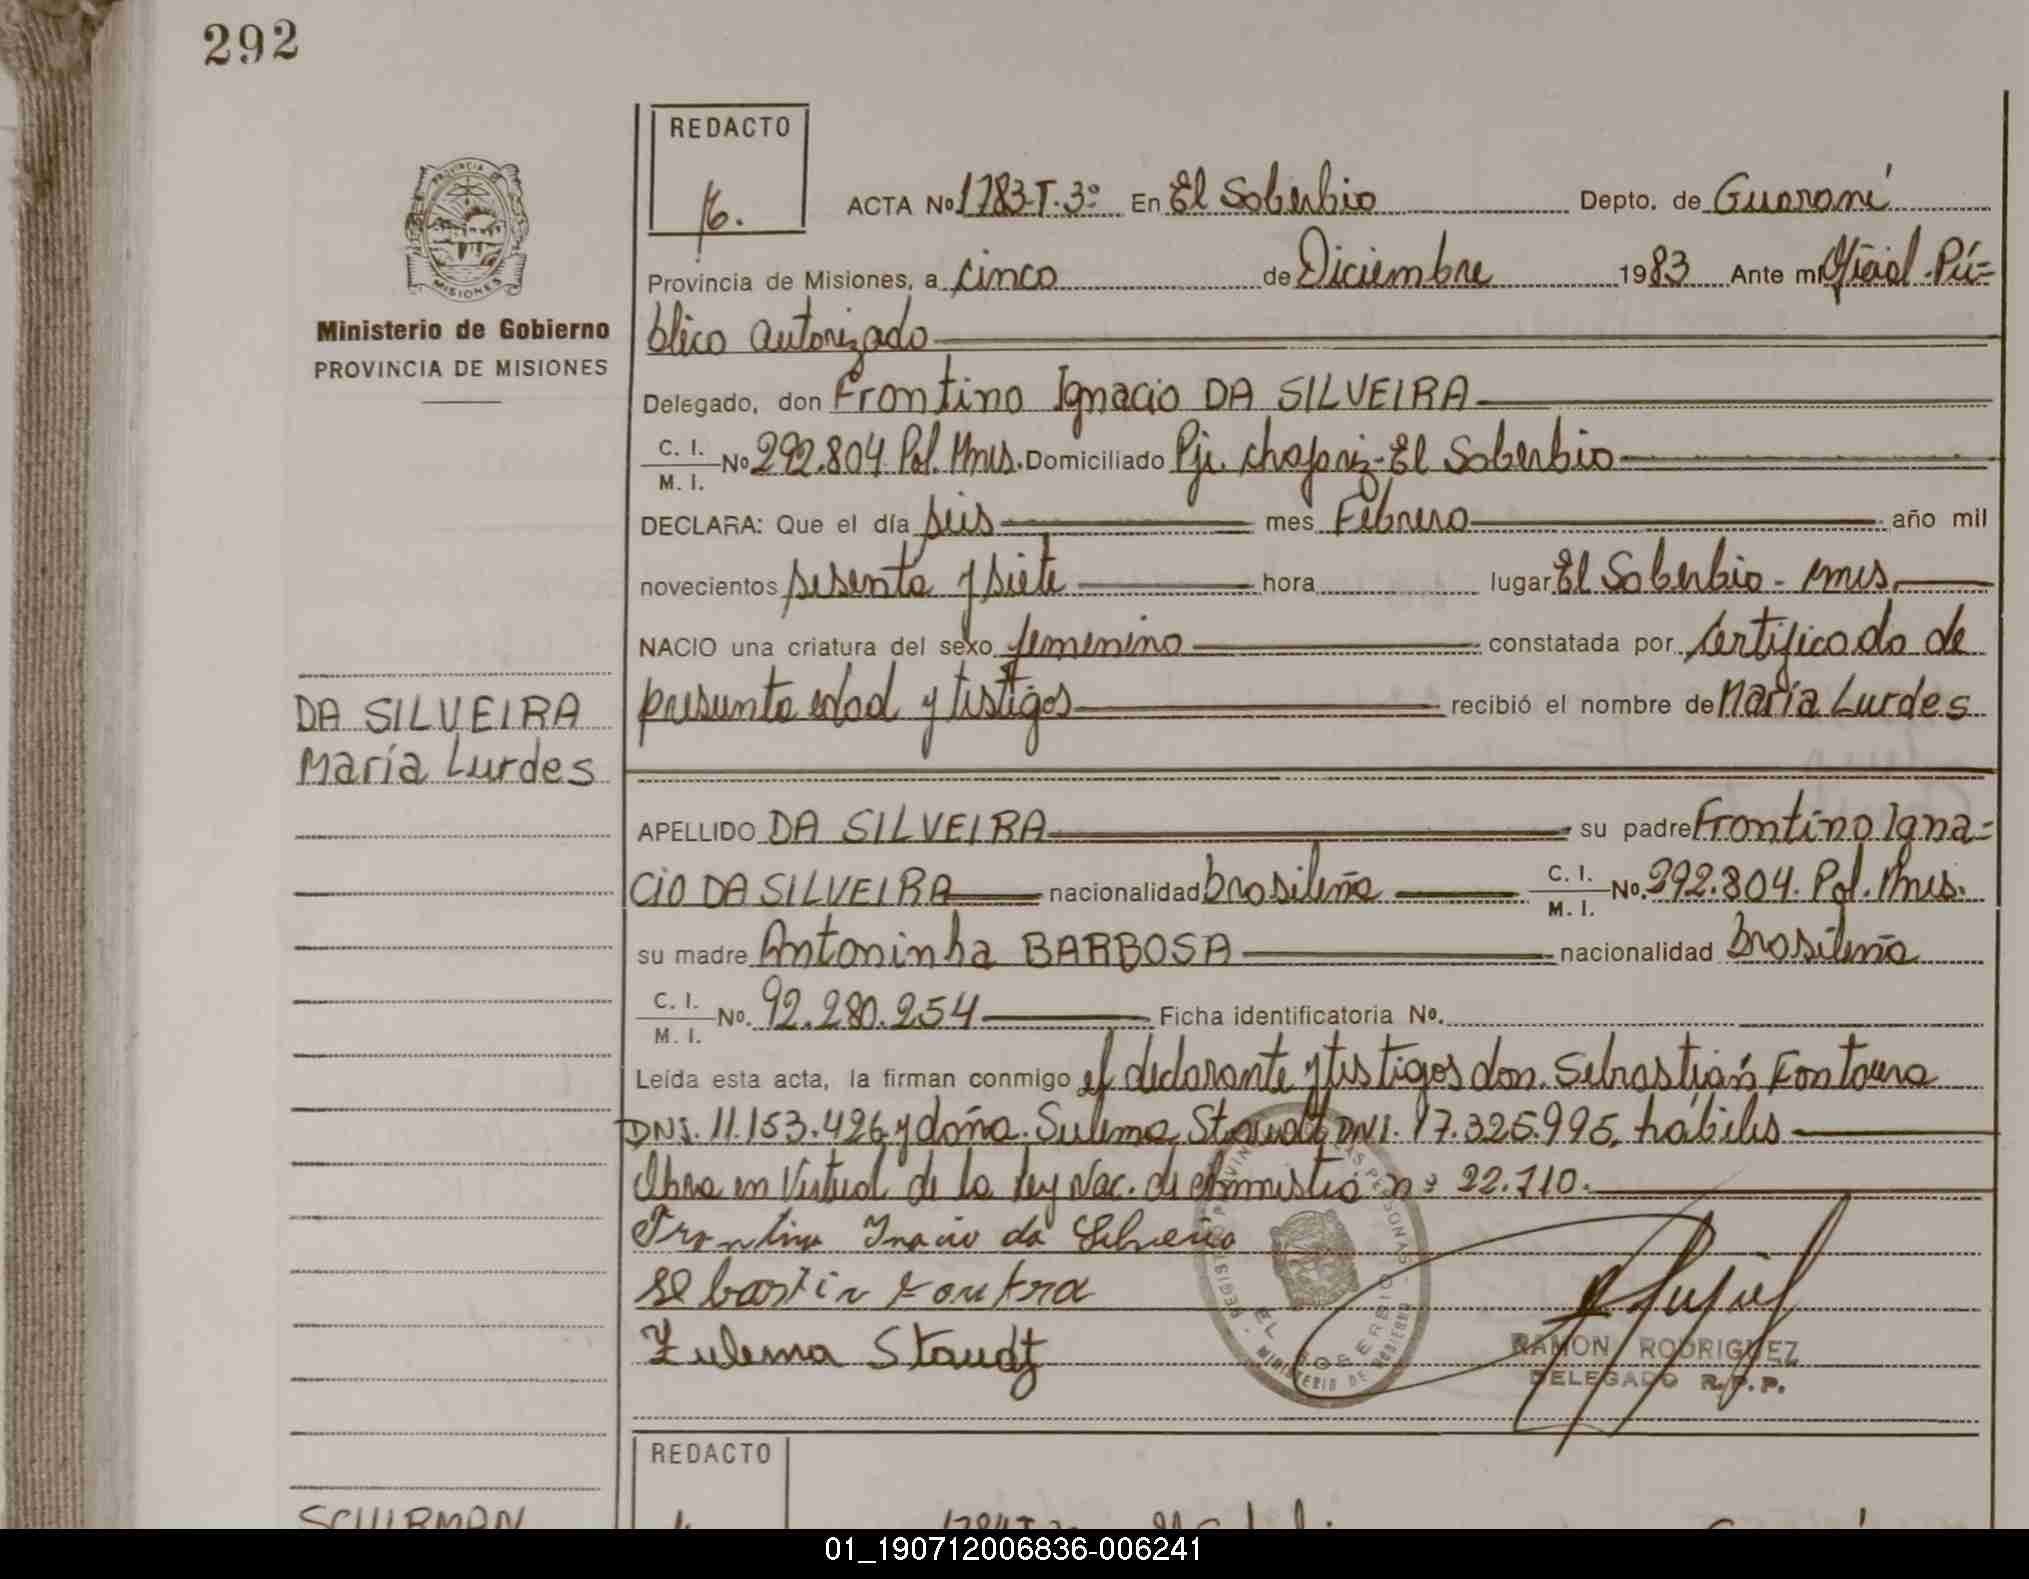 292
REDACTO
ACTA Nº 1783-T.3º En El Soberbio Depto. de Guaraní
Provincia de Misiones, a cinco de Diciembre 1983 Ante mi Oficial Pú=
blico autorizado
PROVINCIA DE
MISIONES
Ministerio de Gobierno
PROVINCIA DE MISIONES
Delegado, don Frontino Ignacio DA SILVEIRA
C. I.
M. I.
Nº 292.804 Pol. Mnes. Domiciliado Pje. chafariz-El Soberbio
DECLARA: Que el día seis mes Febrero año mil
novecientos sesenta y siete hora lugar El Soberbio - Mnes.
NACIO una criatura del sexo femenino constatada por Certificado de
presunta edad y testigos recibió el nombre de María Lurdes
DA SILVEIRA
María Lurdes
APELLIDO DA SILVEIRA su padre Frontino Igna=
cio DA SILVEIRA nacionalidad brasileña C. I. M. I. Nº. 292.804. Pol. Mnes.
su madre Antoninha BARBOSA nacionalidad brasileña
C. I.
M. I.
Nº. 92.280.254 Ficha identificatoria Nº.
Leída esta acta, la firman conmigo el declarante y testigos don. Sebastián Fontoura
DNI. 11.153.426 y doña. Sulema Staudt DNI. 17.325.995, hábiles
Obra en Virtud de la Ley Nac. de Amnistía nº 22.710.
Frontino Inacio da Silveira
Sebastin Fontra
Zulema Staudt
EL SOBERBIO
MINISTERIO DE GOBIERNO
RAMON RODRIGUEZ
DELEGADO R.P.P.
REDACTO
SCHIRMAN
1784T.3º El Soberbio
01_190712006836-006241